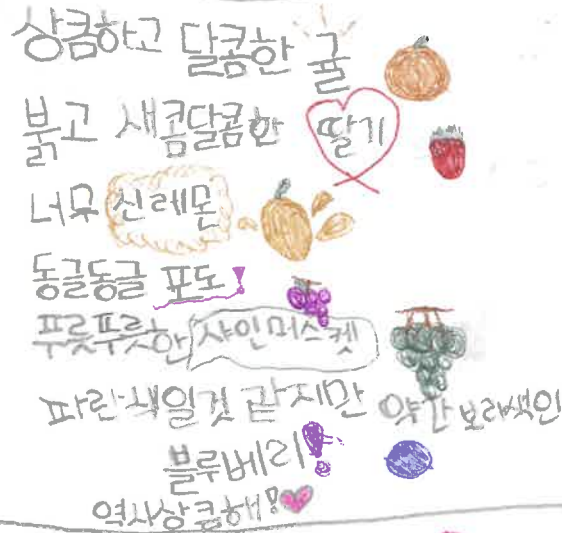 상큼하고 달콤한 귤
붉고 새콤달콤한 딸기
너무 신 레몬
동글동글 포도!
푸릇푸릇한 샤인머스켓
파란색일것 같지만 약간 보라색인
블루베리!
역시상큼해!